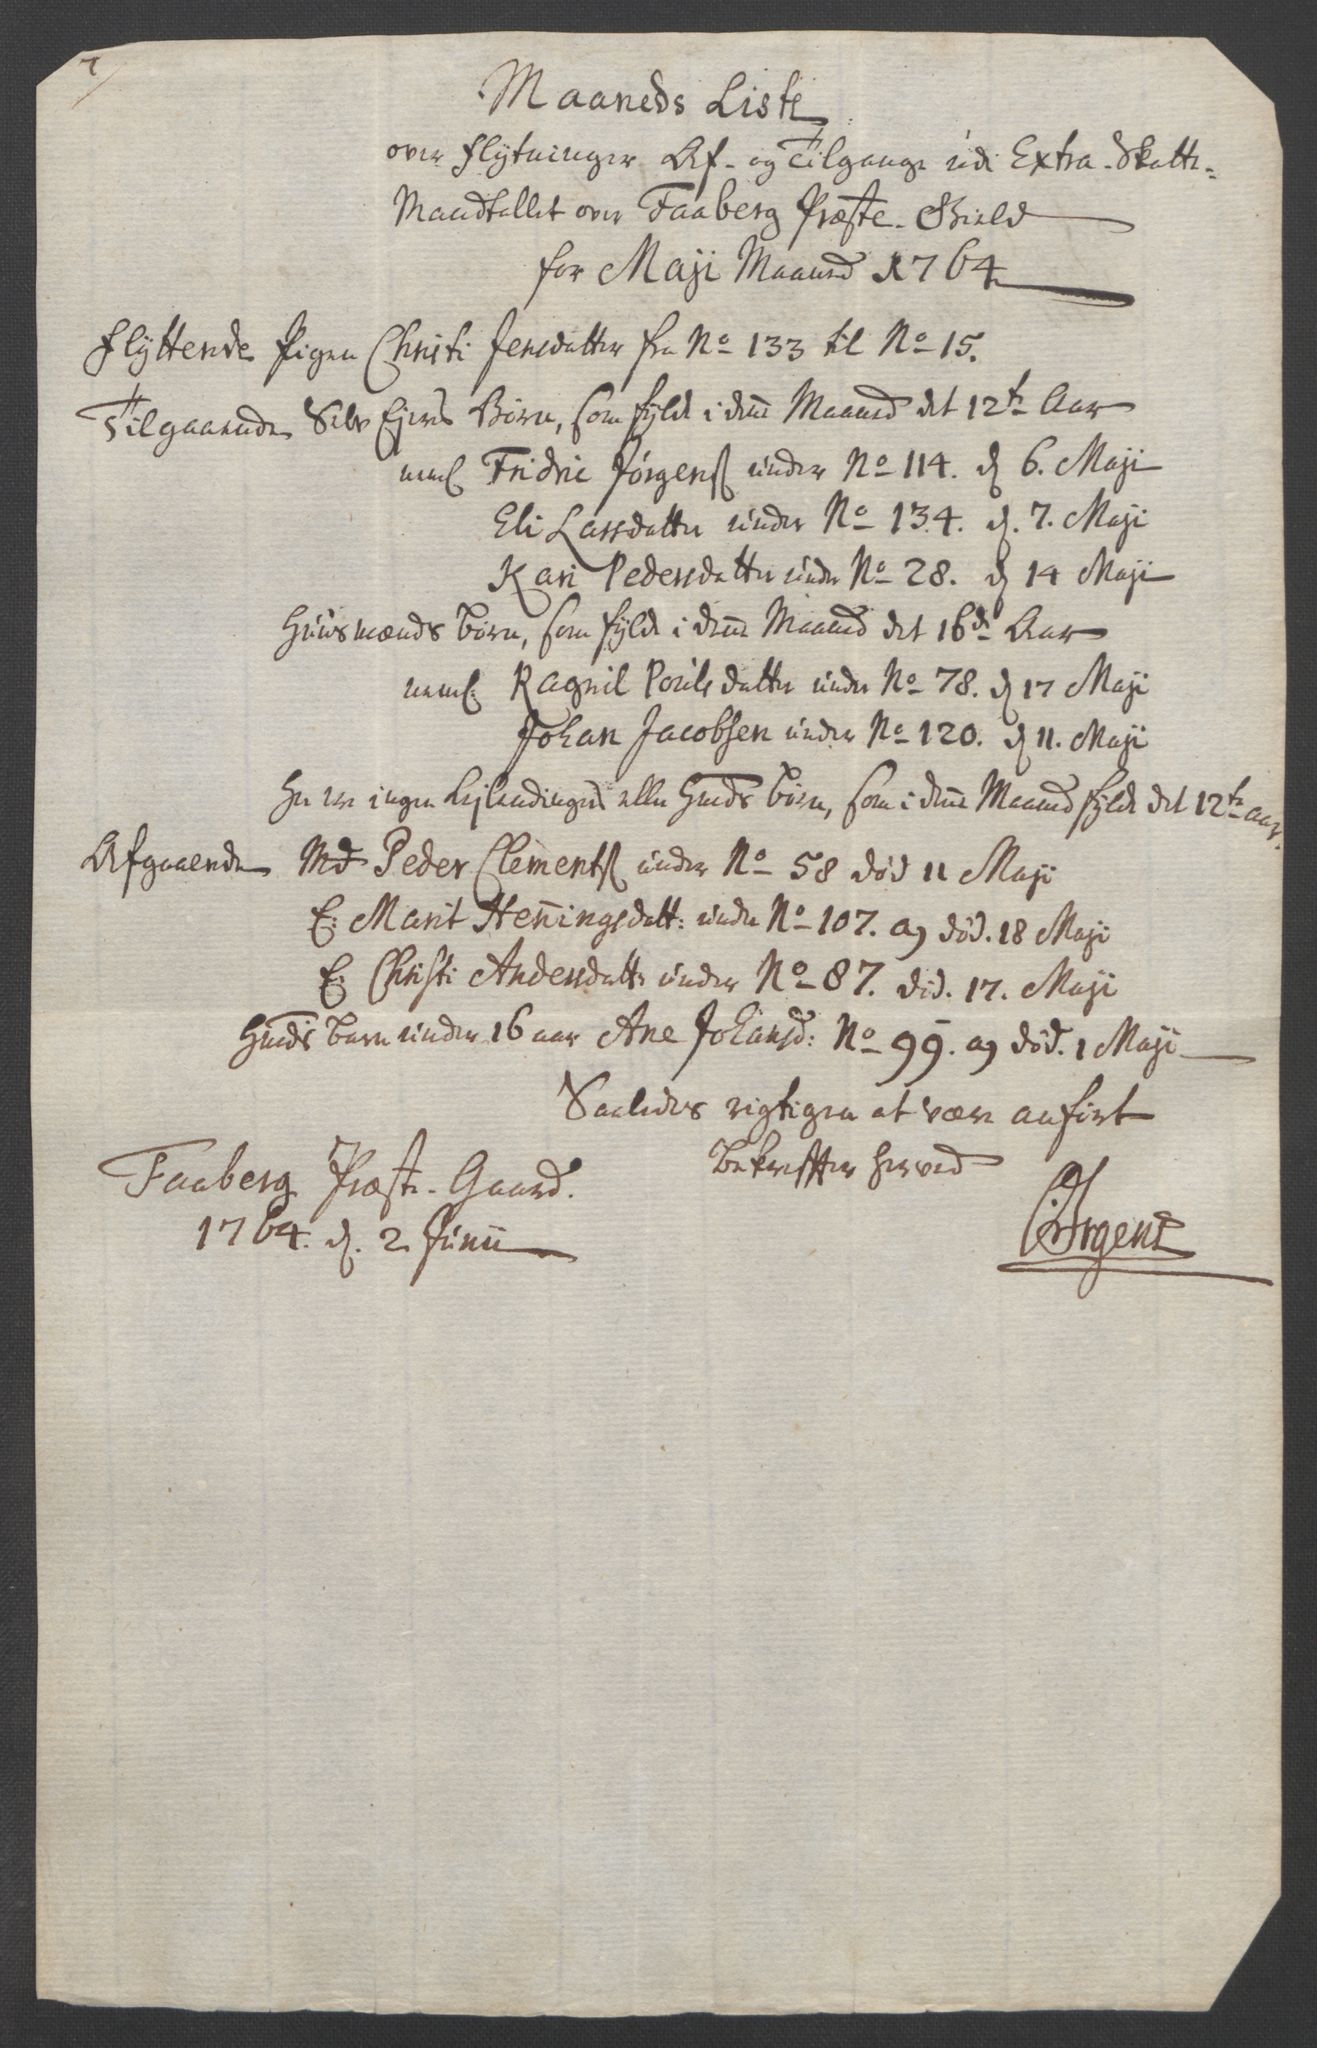 7
Maaneds Liste
over Flytninger Af- og Tilgange udi Extra-Skatte-
Mandtallet over Faaberg Præste-Gield
for Maji Maaned 1764
Flyttende Pigen Christi Jensdatter fra No 133 til No 15.
Tilgaaende Selv Ejeres Børn, som fylde i denne Maaned det 12te Aar
neml Fridric Jörgens. under No 114. d 6. Maji
Eli Larsdatter under No 134. d. 7. Maji
Kari Pedersdatter under No 28. d 14 Maji
Huusmænds børn, som fylde i denne Maaned det 16de Aar
neml: Ragnil Poulsdatter under No 78. d 17 Maji
Johan Jacobsen under No 120. d 11. Maji
Her er ingen Lejlendinges eller Hmds børn, som i denne Maaned fylde det 12te aar.
Afgaaende Md Peder Clements. under No 58 död 11 Maji
E: Marit Henningsdatt: under No 107. død. 18 Maji
E: Christi Andersdatt: under No 87. död. 17. Maji
Hmds barn under 16 aar Ane Johansd: No 99. död. 1 Maji
Saaledes rigtigen at være anført
bekræffter herved
Faaberg Præste-Gaard.
1764. d. 2 Junii